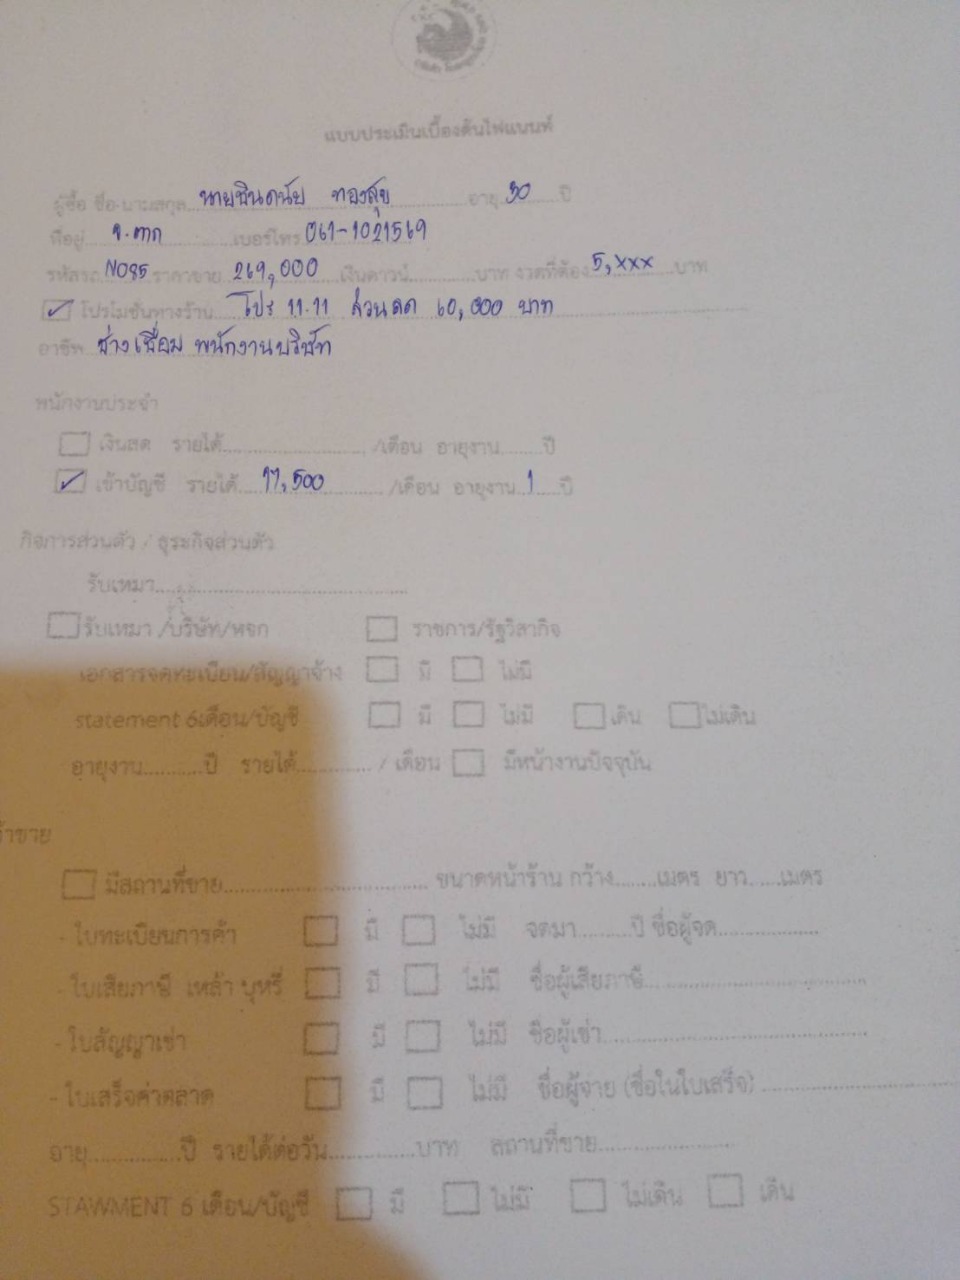 แบบประเมินเบื้องต้นไฟแนนท์
ผู้ซื้อ ชื่อ-นามสกุล นายชินดนัย ทองสุข อายุ 30 ปี
ที่อยู่ จ.ตาก เบอร์โทร 061-1021569
รหัสรถ N085 ราคาขาย 269,000 เงินดาวน์ บาท งวดที่ต้อง 5,xxx บาท
โปรโมชั่นทางร้าน โปร 11.11 ส่วนลด 60,000 บาท
อาชีพ ช่างเชื่อม พนักงานบริษัท
พนักงานประจำ
เงินสด รายได้ /เดือน อายุงาน ปี
เข้าบัญชี รายได้ 17,500 /เดือน อายุงาน 1 ปี
กิจการส่วนตัว / ธุระกิจส่วนตัว
รับเหมา
รับเหมา /บริษัท/หจก ราชการ/รัฐวิสากิจ
เอกสารจดทะเบียน/สัญญาจ้าง มี ไม่มี
statement 6เดือน/บัญชี มี ไม่มี เดิน ไม่เดิน
อายุงาน ปี รายได้ / เดือน มีหน้างานปัจจุบัน
ค้าขาย
มีสถานที่ขาย ขนาดหน้าร้าน กว้าง เมตร ยาว เมตร
- ใบทะเบียนการค้า มี ไม่มี จดมา ปี ชื่อผู้จด
- ใบเสียภาษี เหล้า บุหรี่ มี ไม่มี ชื่อผู้เสียภาษี
- ใบสัญญาเช่า มี ไม่มี ชื่อผู้เช่า
- ใบเสร็จค่าตลาด มี ไม่มี ชื่อผู้จ่าย (ชื่อในใบเสร็จ)
อายุ ปี รายได้ต่อวัน บาท สถานที่ขาย
STAWMENT 6 เดือน/บัญชี มี ไม่มี ไม่เดิน เดิน